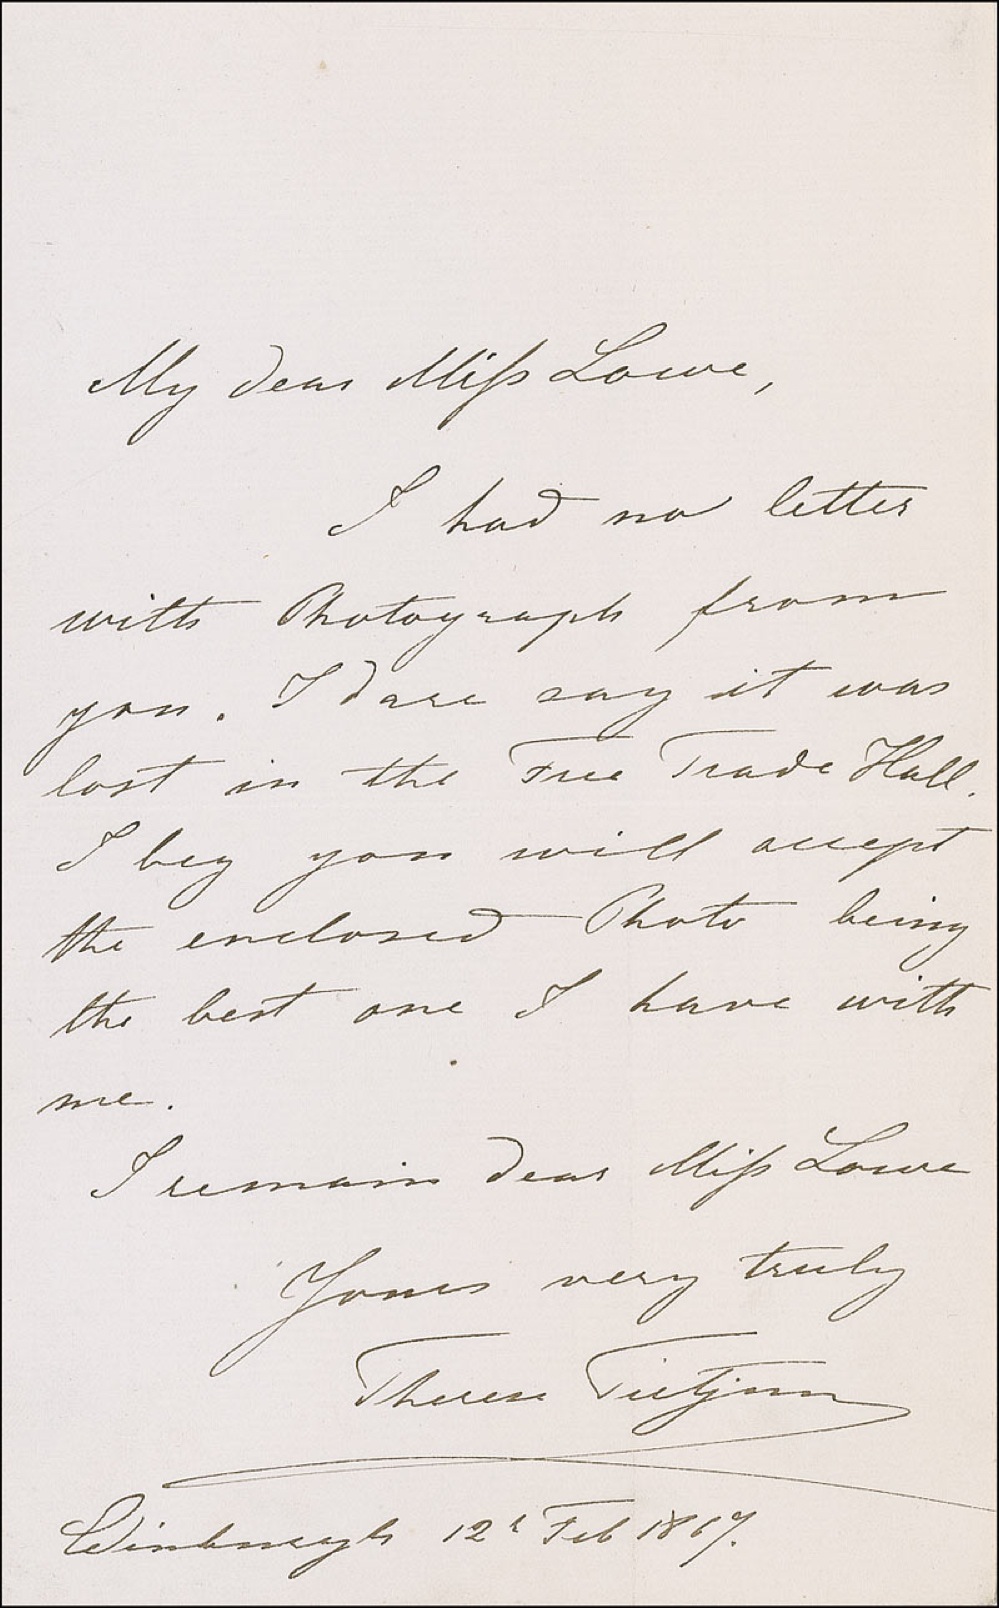 My dear Miss Lowe,
I had no letter
with Photograph from
you. I dare say it was
lost in the Free Trade Hall.
I beg you will accept
the enclosed Photo being
the best one I have with
me.
I remain dear Miss Lowe
Yours very truly
Therese Tietjens
Edinburgh 12h Feb 1867.